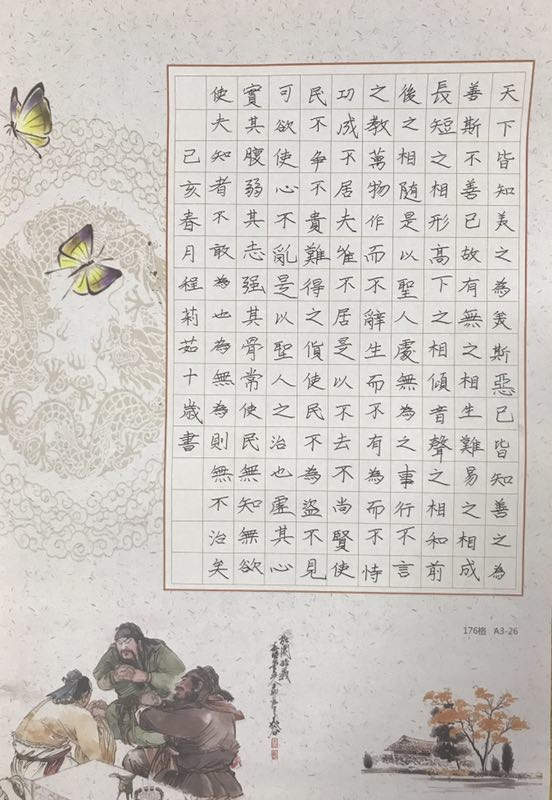 天下皆知美之為美斯惡已皆知善之為
善斯不善已故有無之相生難易之相成
長短之相形高下之相傾音聲之相和前
後之相隨是以聖人處無為之事行不言
之教萬物作而不辭生而不有為而不恃
功成不居夫隹不居是以不去不尚賢使
民不爭不貴難得之貨使民不為盜不見
可欲使心不亂是以聖人之治也虛其心
實其腹弱其志强其骨常使民無知無欲
使夫知者不敢為也為無為則無不治矣
己亥春月程莉茹十歲書
176格 A3-26
桃園結義